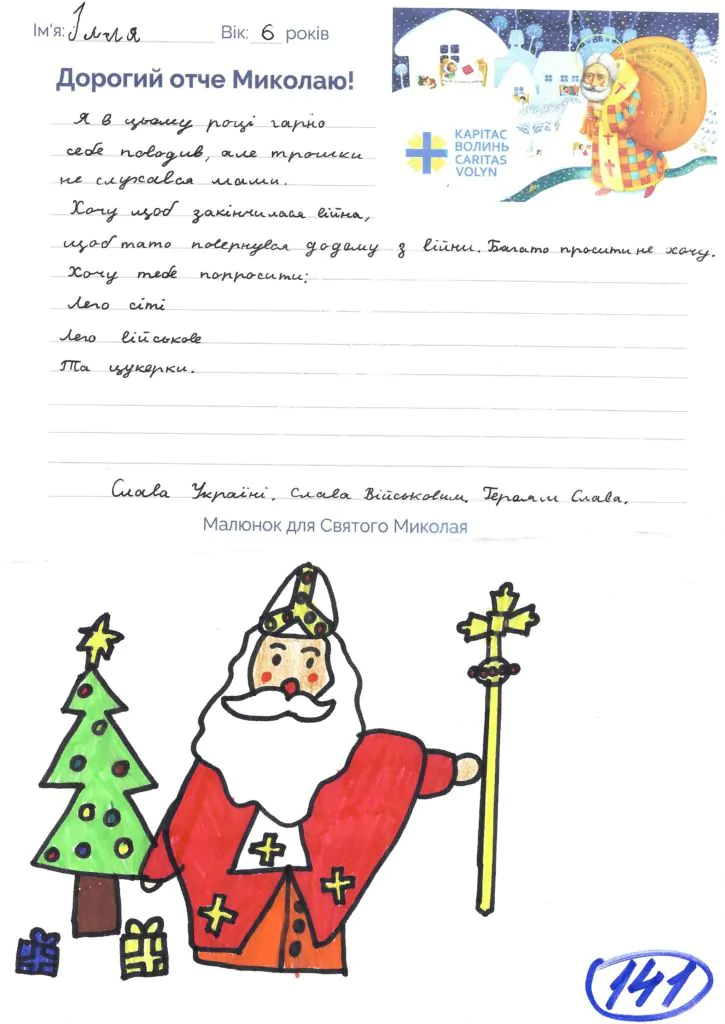 Ім'я: Ілля Вік: 6 років
Дорогий отче Миколаю!
КАРІТАС
ВОЛИНЬ
CARITAS
VOLYN
Я в цьому році гарно
себе поводив, але трошки
не слухався мами.
Хочу щоб закінчилася війна,
щоб тато повернувся додому з війни. Багато просити не хочу.
Хочу тебе попросити:
Лего сіті
Лего військове
Та цукерки.
Слава Україні. Слава Військовим. Героям Слава.
Малюнок для Святого Миколая
141